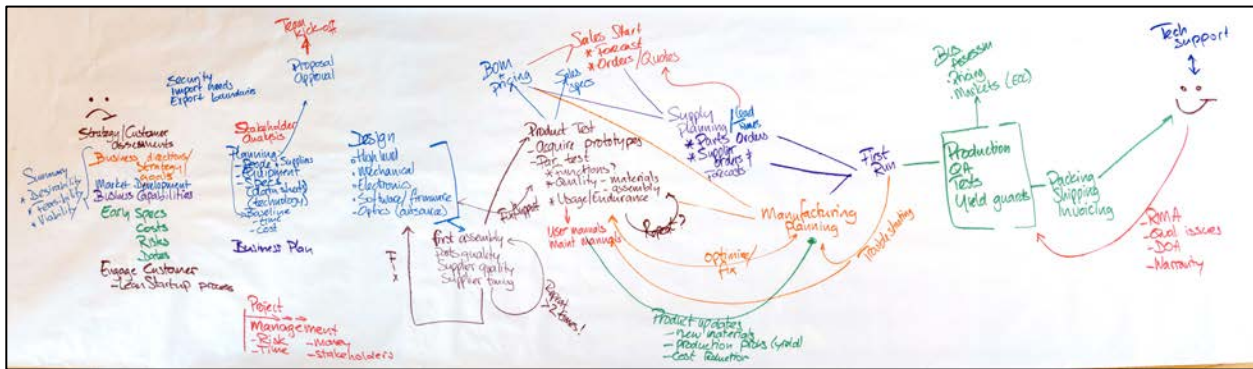 Team
Kick-off
Proposal
Approval
Security
Import needs
Export boundaries
Strategy/Customer
assessments
Business directions/
Strategy/
goals
Market Development
Business Capabilities
Summary
* Desirability
* Feasibility
* Viability
Early Specs
Costs
Risks
Dates
Engage Customer
- Lean Startup process
Stakeholder
Analysis
Planning
- Equipment
- Specs
(data sheet)
(technology)
- Baseline
- time
- cost
Business Plan
Project
Management
- Risk - money
- Time - stakeholders
Design
* High level
* Mechanical
* Electronics
* Software/firmware
* Optics (outsource)
First assembly
Parts quality
Supplier quality
Supplier timing
Fix
Repeat
2 times!
BOM
Pricing
Sales Start
* Forecast
* Orders/Quotes
Sales
Specs
Product Test
- Acquire prototypes
- Par. test
* Functions?
* Quality - materials
- assembly
* Usage/Endurance
Repeat?
User manuals
Maint manuals
Supply
Planning/
Lead
times
* Parts Orders
* Supplier
orders &
forecasts
Manufacturing
Planning
Optimize/
Fix
Troubleshooting
Product updates
- new materials
- production probs (yield)
- cost reduction
First
Run
Bus
Assessm
. Pricing
. Markets (ECC)
Production
QA
Tests
Yield guards
Packing
Shipping
Invoicing
Tech
Support
- RMA
- Qual issues
- DOA
- Warranty